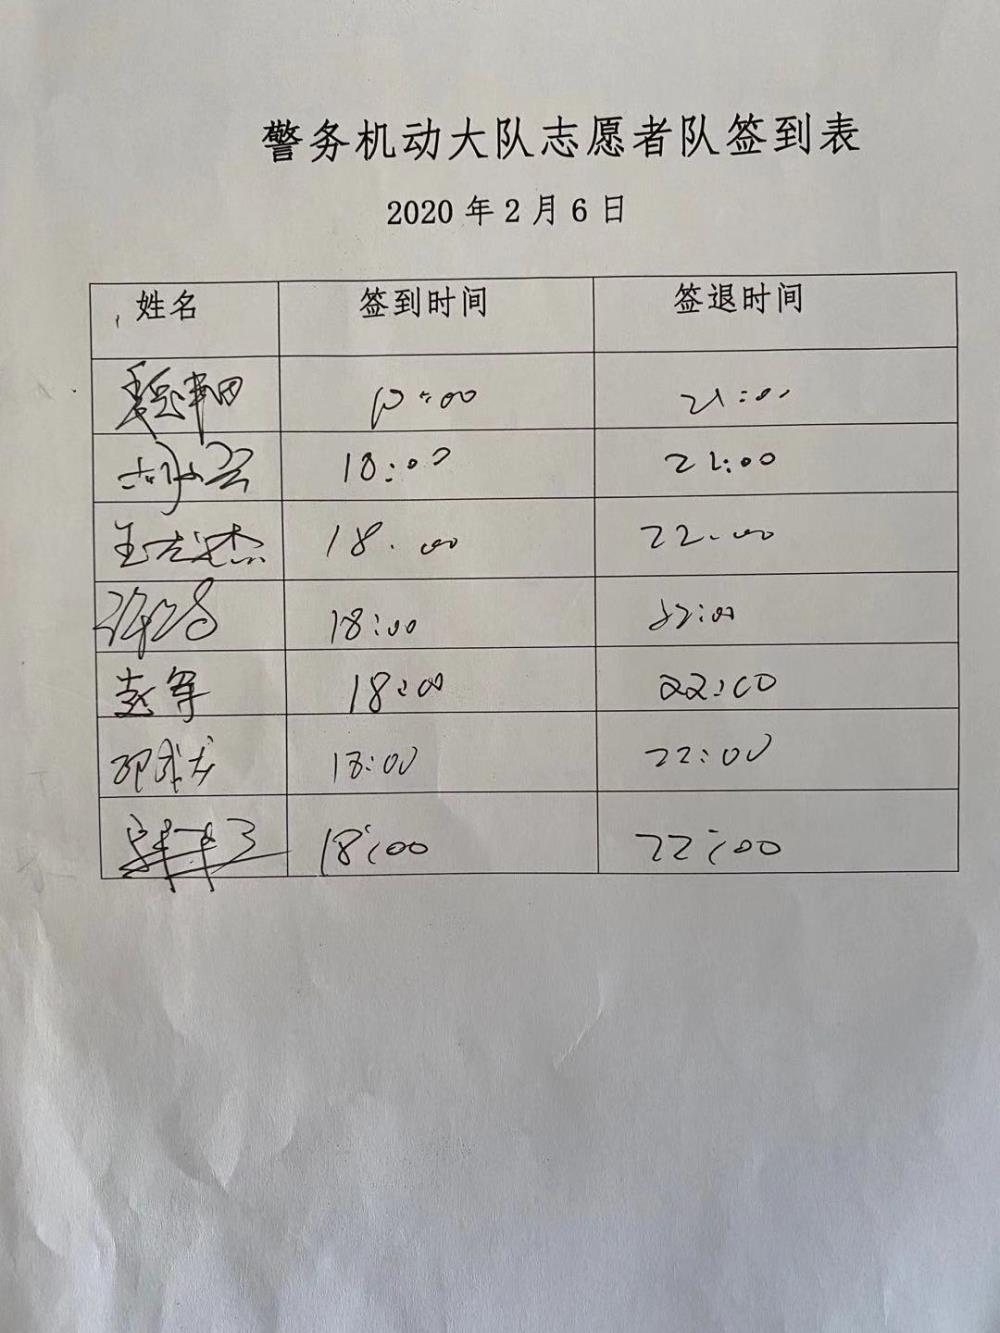 警务机动大队志愿者队签到表
2020 年 2 月 6 日
姓名 签到时间 签退时间
21:00
18:00 21:00
王志杰 18.00 22.00
18:00 22:00
赵军 18:00 22:00
邓成龙 18:00 22:00
18:00 22:00